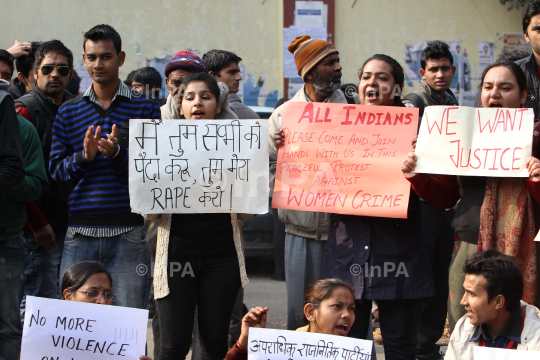 मैं तुम सभी को
पैदा करू, तुम मेरा
RAPE करो !
ALL INDIANS
PLEASE COME AND JOIN
HANDS WITH US IN THIS
PEACEFUL PROTEST
AGAINST
WOMEN CRIME
WE WANT
JUSTICE
NO MORE
VIOLENCE
अपराधिक राजनितिक
©InPA
©InPA
©InPA